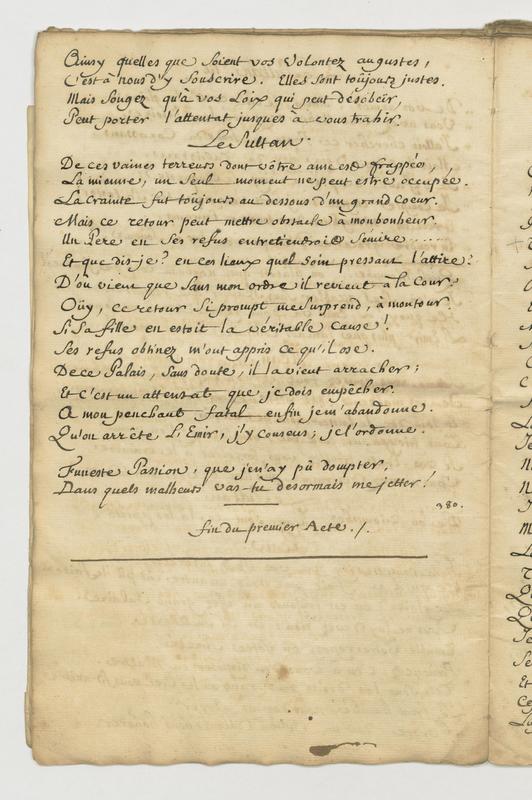 Ainsy quelles que soient vos Volontez augustes,
C'est à nous d'y souscrire. Elles sont toûjours justes.
Mais songez qu'à vos Loix qui peut désobeïr,
Peut porter l'attentat jusques à vous trahir.
Le Sultan.
De ces vaines terreurs dont vôtre ame est frappée,
La mienne, un seul moment ne peut estre occupée.
La Crainte fut toujours au dessous d'un grand Coeur.
Mais ce retour peut mettre obstacle à mon bonheur.
Un Pere en ses refus entretiendroit Sémire .....
Et que dis-je? en ces lieux quel soin pressant l'attire?
D'où vient que sans mon ordre il revient à la Cour
Oüy, ce retour si prompt me surprend, à mon tour.
Si sa fille en estoit la véritable cause!
Ses refus obtinez m'ont appris ce qu'il ose.
De ce Palais, sans doute, il la vient arracher;
Et c'est un attentat que je dois empêcher.
A mon penchant fatal enfin je m'abandonne.
Qu'on arrête L'Emir, j'y consens; je l'ordonne.
Funeste Passion, que je n'ay pû dompter,
Dans quels malheurs vas-tu desormais me jetter!
380.
fin du premier Acte./.